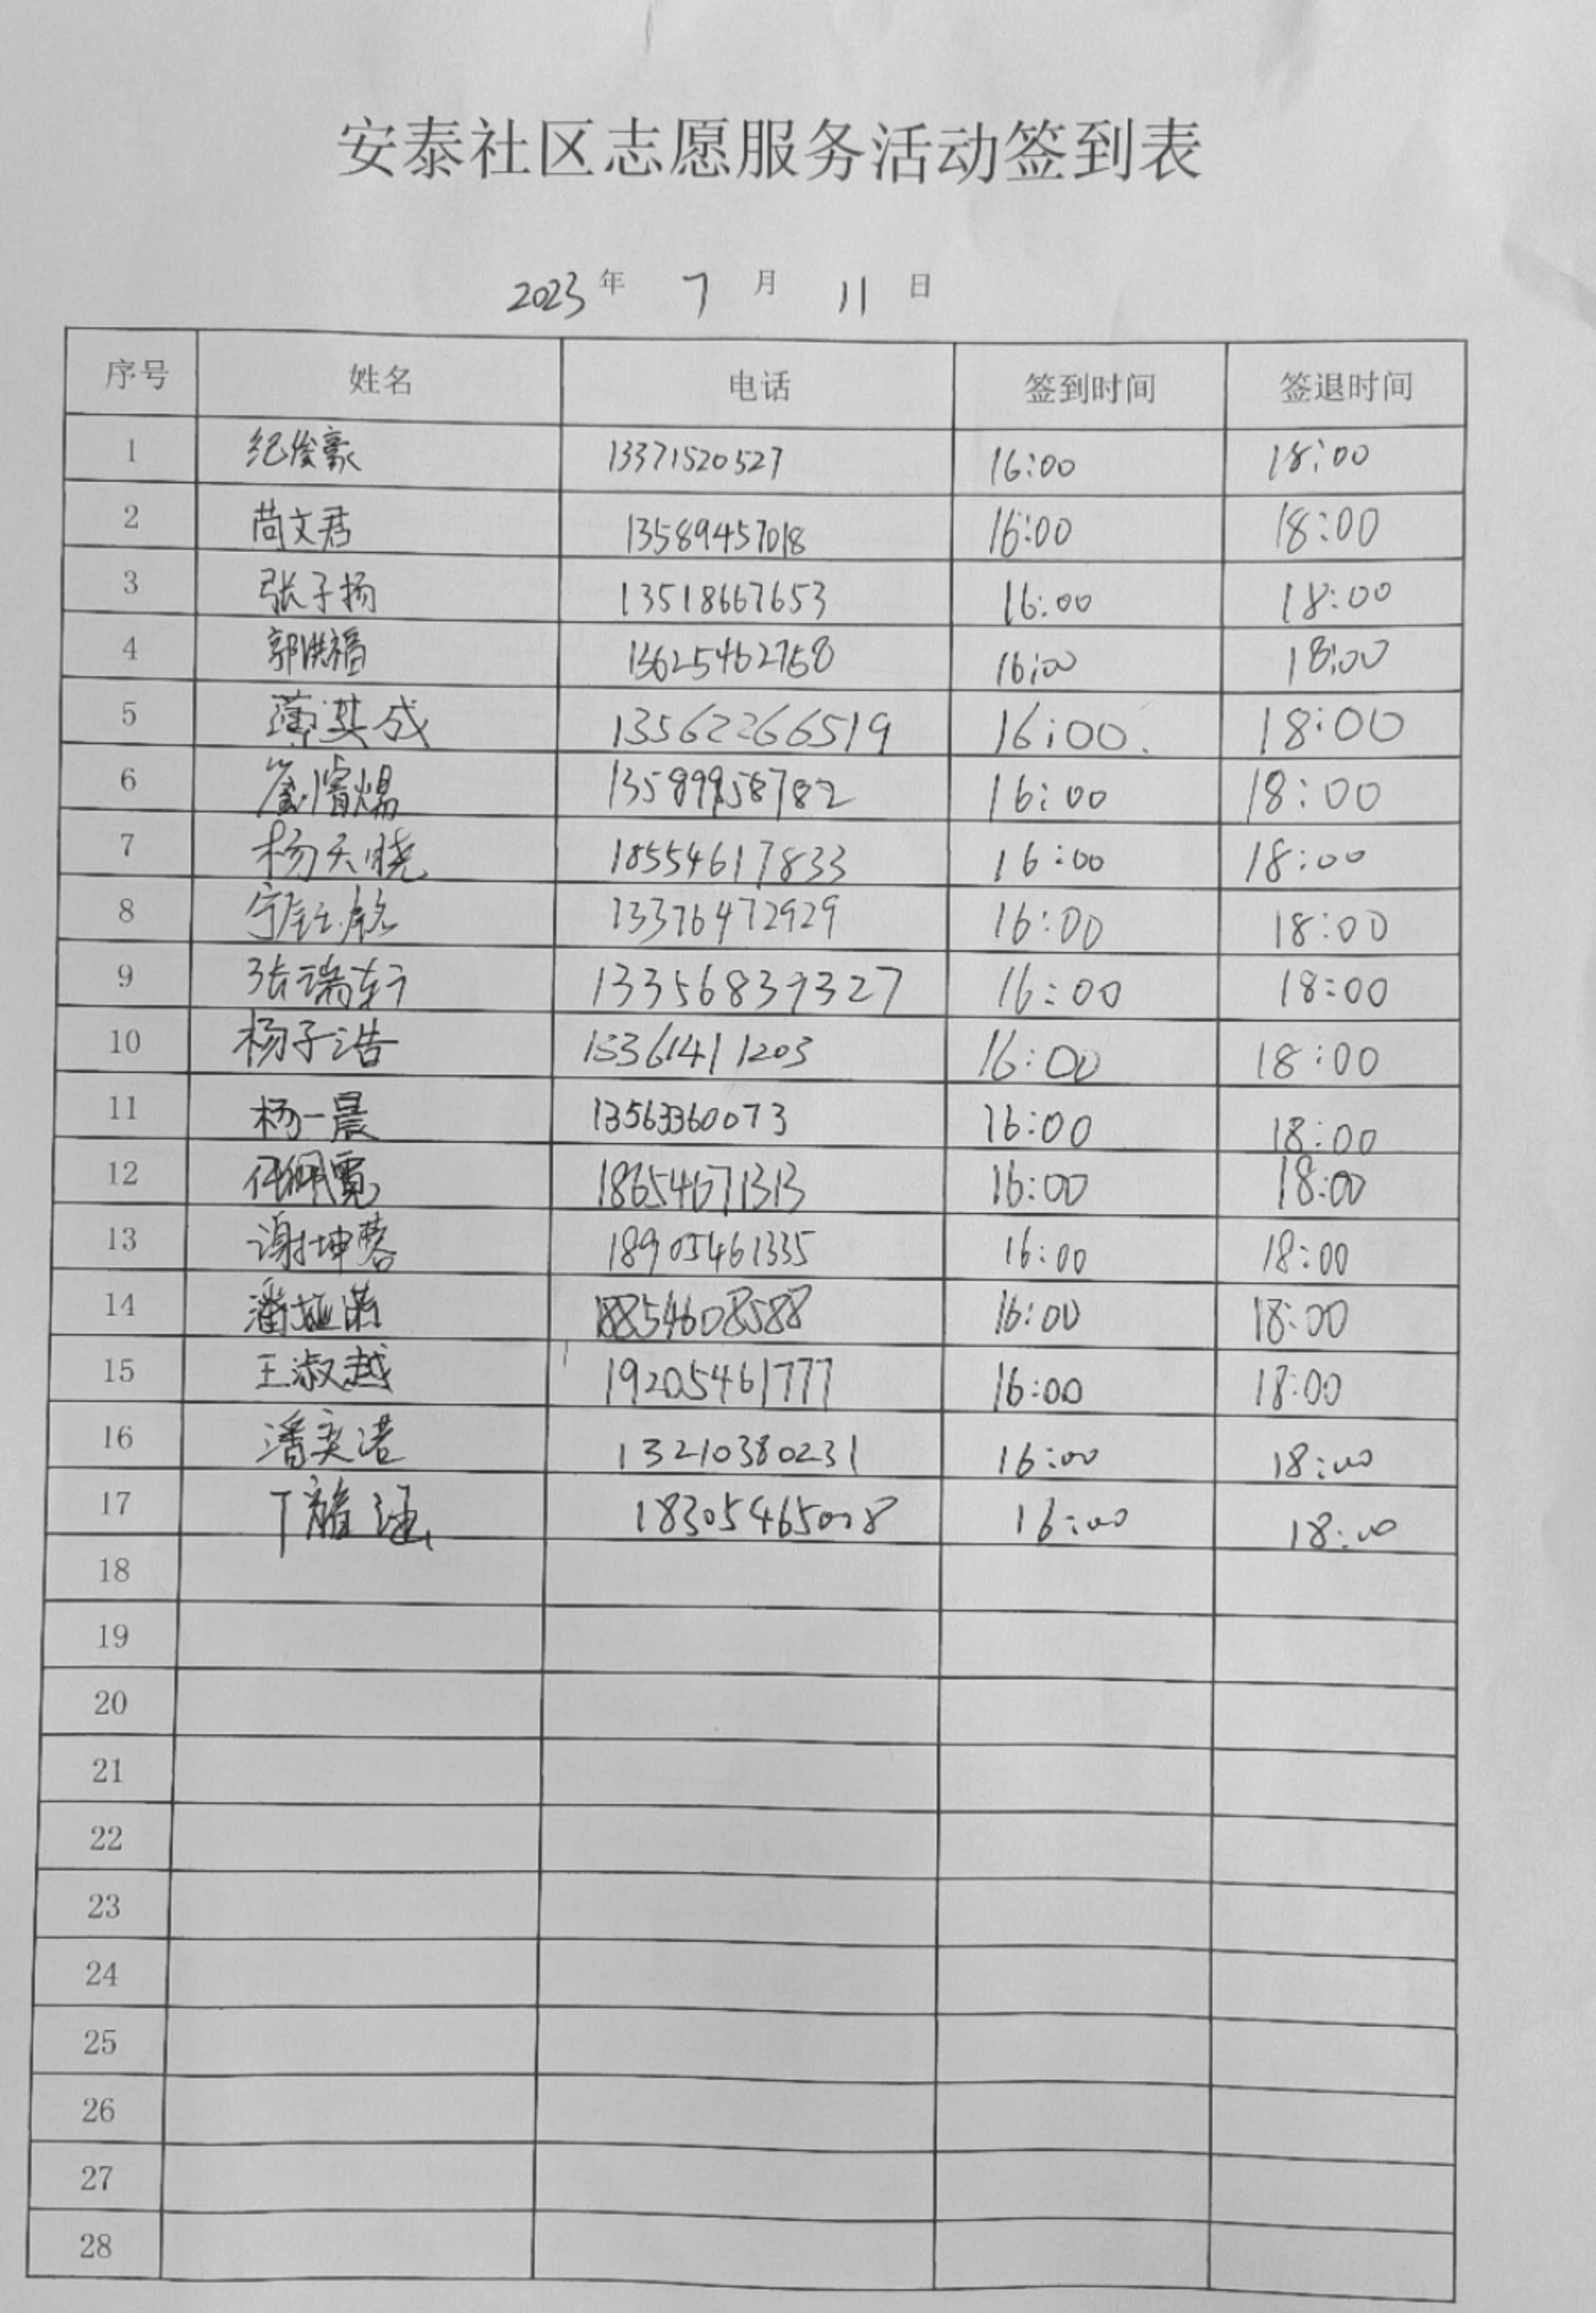 安泰社区志愿服务活动签到表
2023 年 7 月 11 日
序号 姓名 电话 签到时间 签退时间
1 纪俊豪 13371520527 16:00 18:00
2 尚文君 13589457018 16:00 18:00
3 张子扬 13518667653 16:00 18:00
4 郭洪福 13625462758 16:00 18:00
5 薄其成 13562266519 16:00 18:00
6 13589958782 16:00 18:00
7 杨天晓 18554617833 16:00 18:00
8 13376472929 16:00 18:00
9 张瑞轩 13356839327 16:00 18:00
10 杨子浩 15361411203 16:00 18:00
11 杨一晨 13563360073 16:00 18:00
12 任佩霓 18654671313 16:00 18:00
13 谢坤蓉 18905461335 16:00 18:00
14 18854608588 16:00 18:00
15 王淑越 19205461777 16:00 18:00
16 潘奕诺 13210380231 16:00 18:00
17 16:00 18:00
18
19
20
21
22
23
24
25
26
27
28